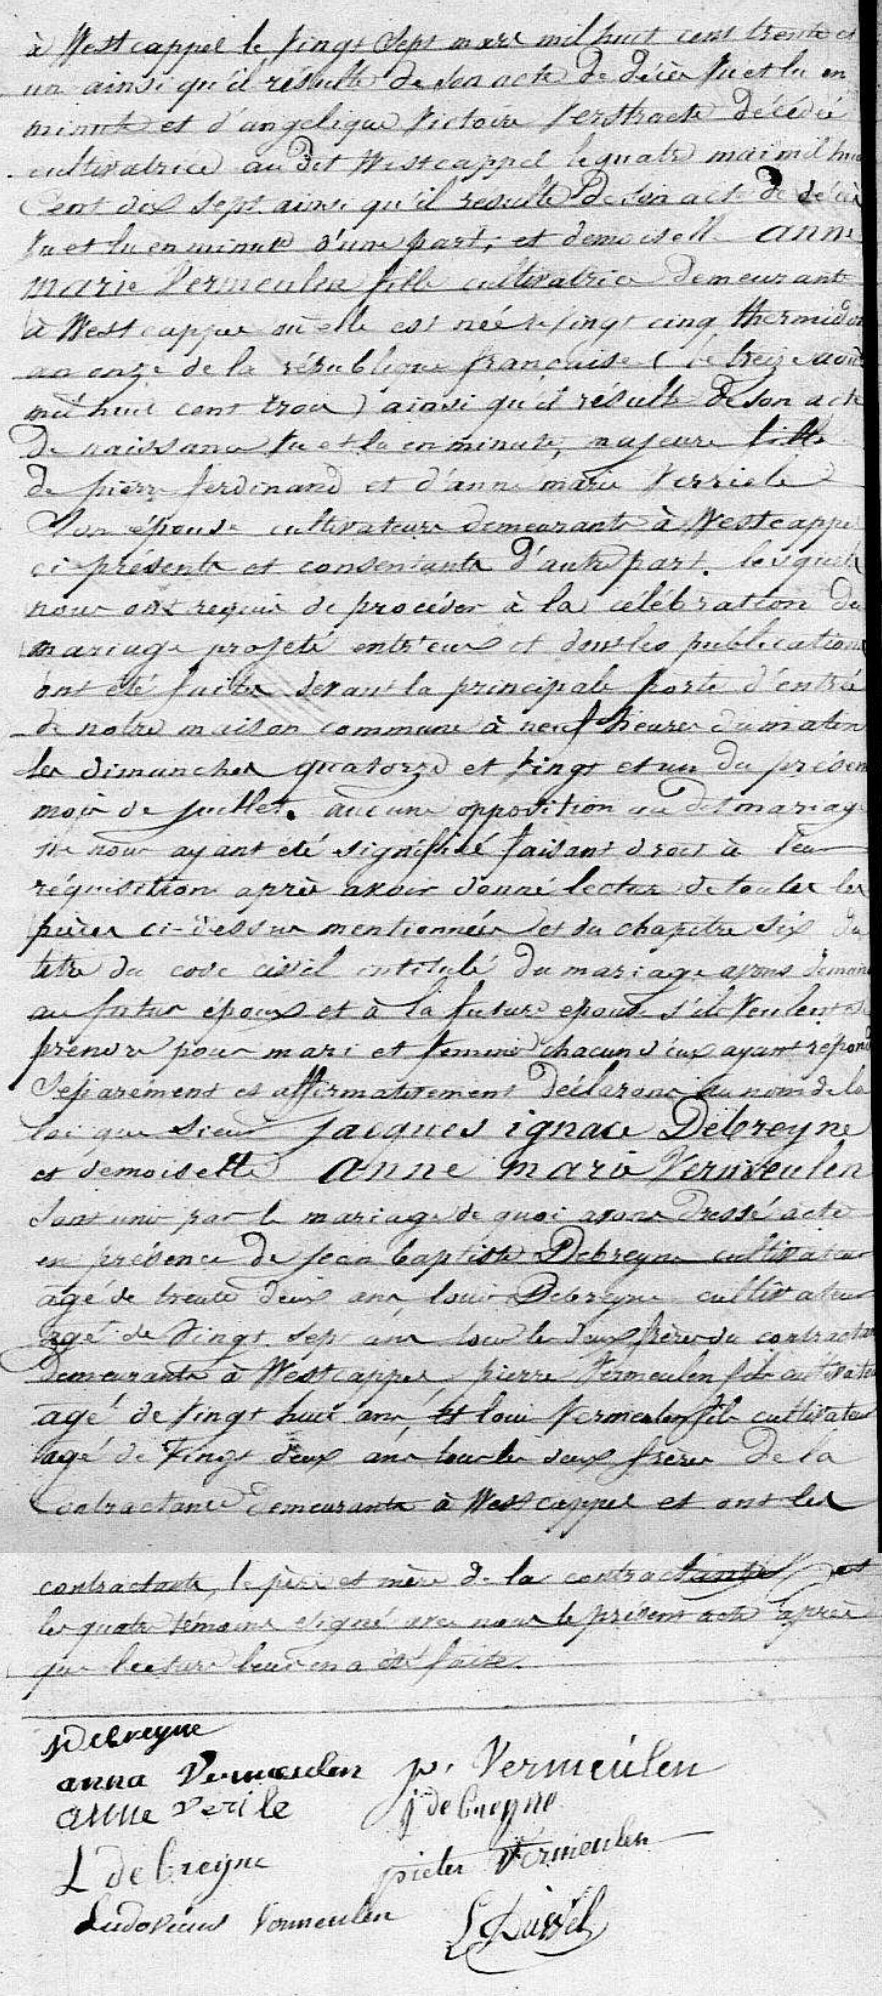 à Westcappel le vingt sept mars mil huit cent trente et
un ainsi qu'il résulte de son acte de décès vu et lu en
minute et d'angelique Victoire Verstraete décédée
cultivatrice au dit Westcappel le quatre mai mil huit
Cent dix sept ainsi qu'il résulte de son acte de décès
vu et lu en minute d'une part; et demoiselle anne
marie Vermeulen fille cultivatrice demeurant
à Westcappel où elle est née le vingt cinq thermidor
an onze de la république française (le treize août
mil huit cent trois) ainsi qu'il résulte de son acte
de naissance vu et lu en minute, majeure fille
de pierre ferdinand et d'anne marie Verriele
Son épouse cultivateurs demeurants à Westcappel
ci présents et consentants d'autre part. lesquels
nous ont requis de procéder à la célébration du
mariage projeté entr'eux et dont les publications
ont été faites devant la principale porte d'entrée
de notre maison commune à neuf heures du matin
les dimanches quatorze et vingt et un du présent
mois de juillet. aucune opposition au dit mariage
ne nous ayant été signifiée faisant droit à leur
réquisition après avoir donné lecture de toutes les
pièces ci-dessus mentionnées et du chapitre six du
titre du code civil intitulé du mariage avons demandé
au futur époux et à la future epouse s'ils veulent se
prendre pour mari et femme chacun d'eux ayant répondu
Séparément et affirmativement déclarons au nom de la
loi que Sieur Jacques ignace Debreyne
et demoiselle anne marie Vermeulen
Sont unis par le mariage de quoi avons dressé acte
en présence de jean baptiste Debreyne cultivateur
agé de trente deux ans, louis Debreyne cultivateur
agé de vingt sept ans tous les deux frères du contractant
demeurants à Westcappel, pierre Vermeulen fils cultivateur
agé de vingt huit ans, et louis Vermeulen fils cultivateur
agé de vingt deux ans tous les deux frères de la
Contractante demeurants à Westcappel et ont les
contractants, le père et mère de la contractante et
les quatre témoins signé avec nous le présent acte après
que lecture leur en a été faite.
jDebreyne
anna Vermeulen p. Vermeulen
anne Verile j de breyne
L debreyne pieter Vermeulen
Ludovicus Vermeulen